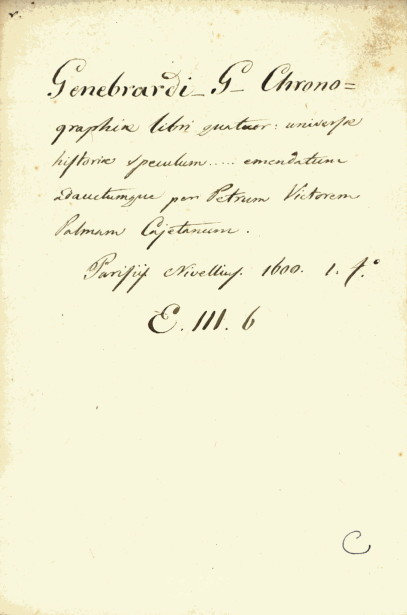 Genebrardi_ G_ Chrono=
graphiæ libri quatuor: universæ
historiæ speculum..... emendatum
adauctumque per Petrum Victorem
Palmam Cajetanum.
Parisiis Nivellius. 1600. 1. f.º
E. III. 6
C